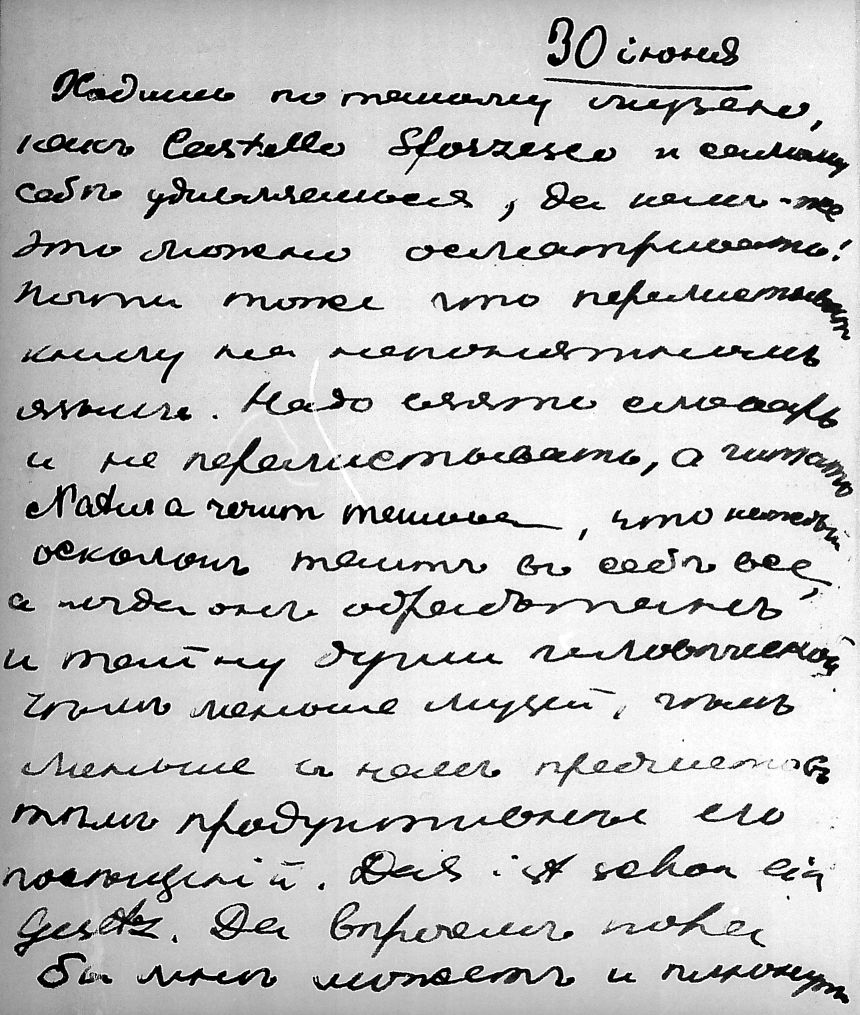 30 іюня
Ходишь по такому музею,
какъ Castello Sforzesco и самому
себѣ удивляешься, да какъ-же
это можно осматривать!
Почти тоже что перелистывать
книгу на непонятномъ
языкѣ. Надо взять словарь
и не перелистывать, а читать
Natura, что каждый
осколокъ таитъ въ себѣ все,
а когда онъ обработанъ
и тайну души человѣческой
Чѣмъ меньше музей, чѣмъ
меньше въ немъ предметовъ
тѣмъ продуктивнѣе его
посѣщеній. Das ist schon ein
Gesetz. Да впрочемъ пока
бы мнѣ можетъ и плюнуть